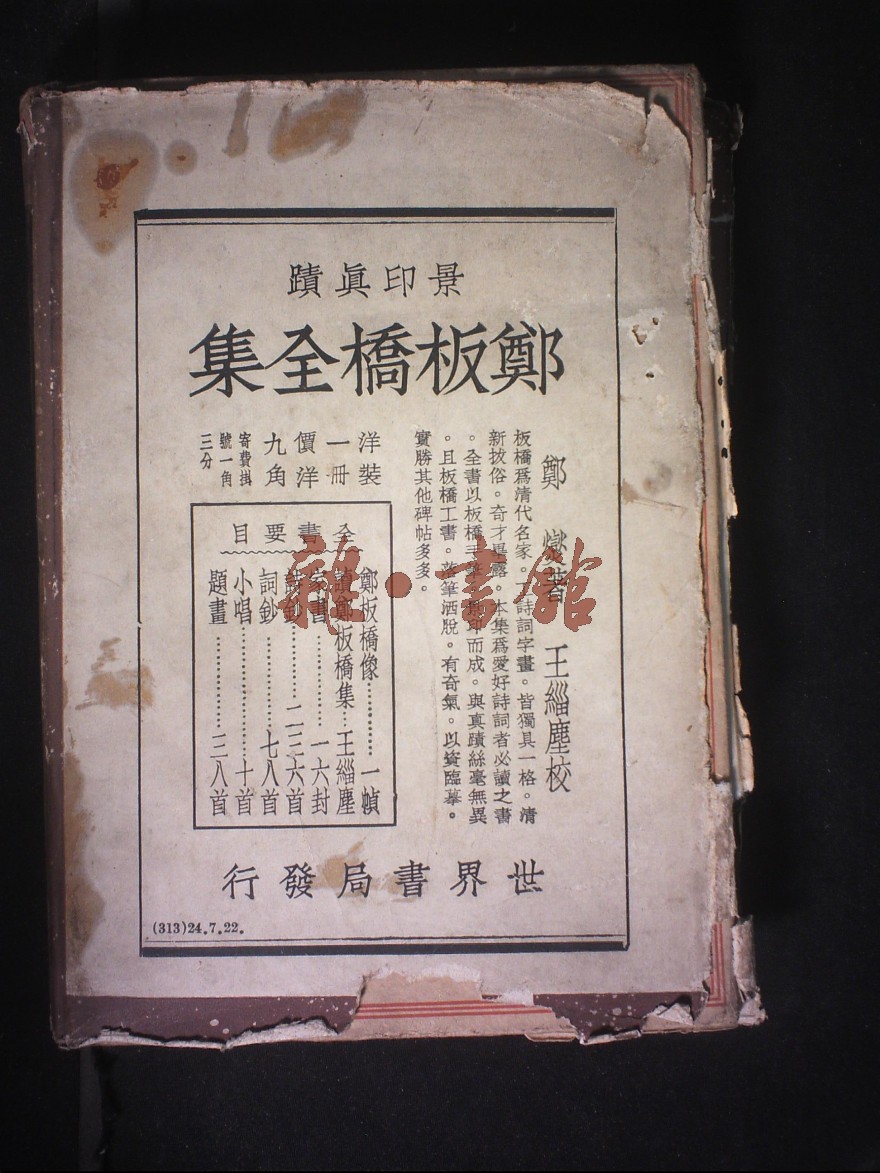 景印眞蹟
鄭板橋全集
鄭 燮著 王緇塵校
板橋爲清代名家。詩詞字畫。皆獨具一格。清
新拔俗。奇才畢露。本集爲愛好詩詞者必讀之書
。全書以板橋手筆 印而成。與真蹟絲毫無異
。且板橋工書。落筆洒脫。有奇氣。以資臨摹。
實勝其他碑帖多多。
洋裝
一冊
價洋
九角
寄費掛
號一角
三分
全書要目
鄭板橋像…………一幀
讀鄭板橋集…王緇塵
家書…………一六封
詩鈔…………二三六首
詞鈔…………七八首
小唱…………十首
題畫…………三八首
世界書局發行
(313)24.7.22.
雜·書館